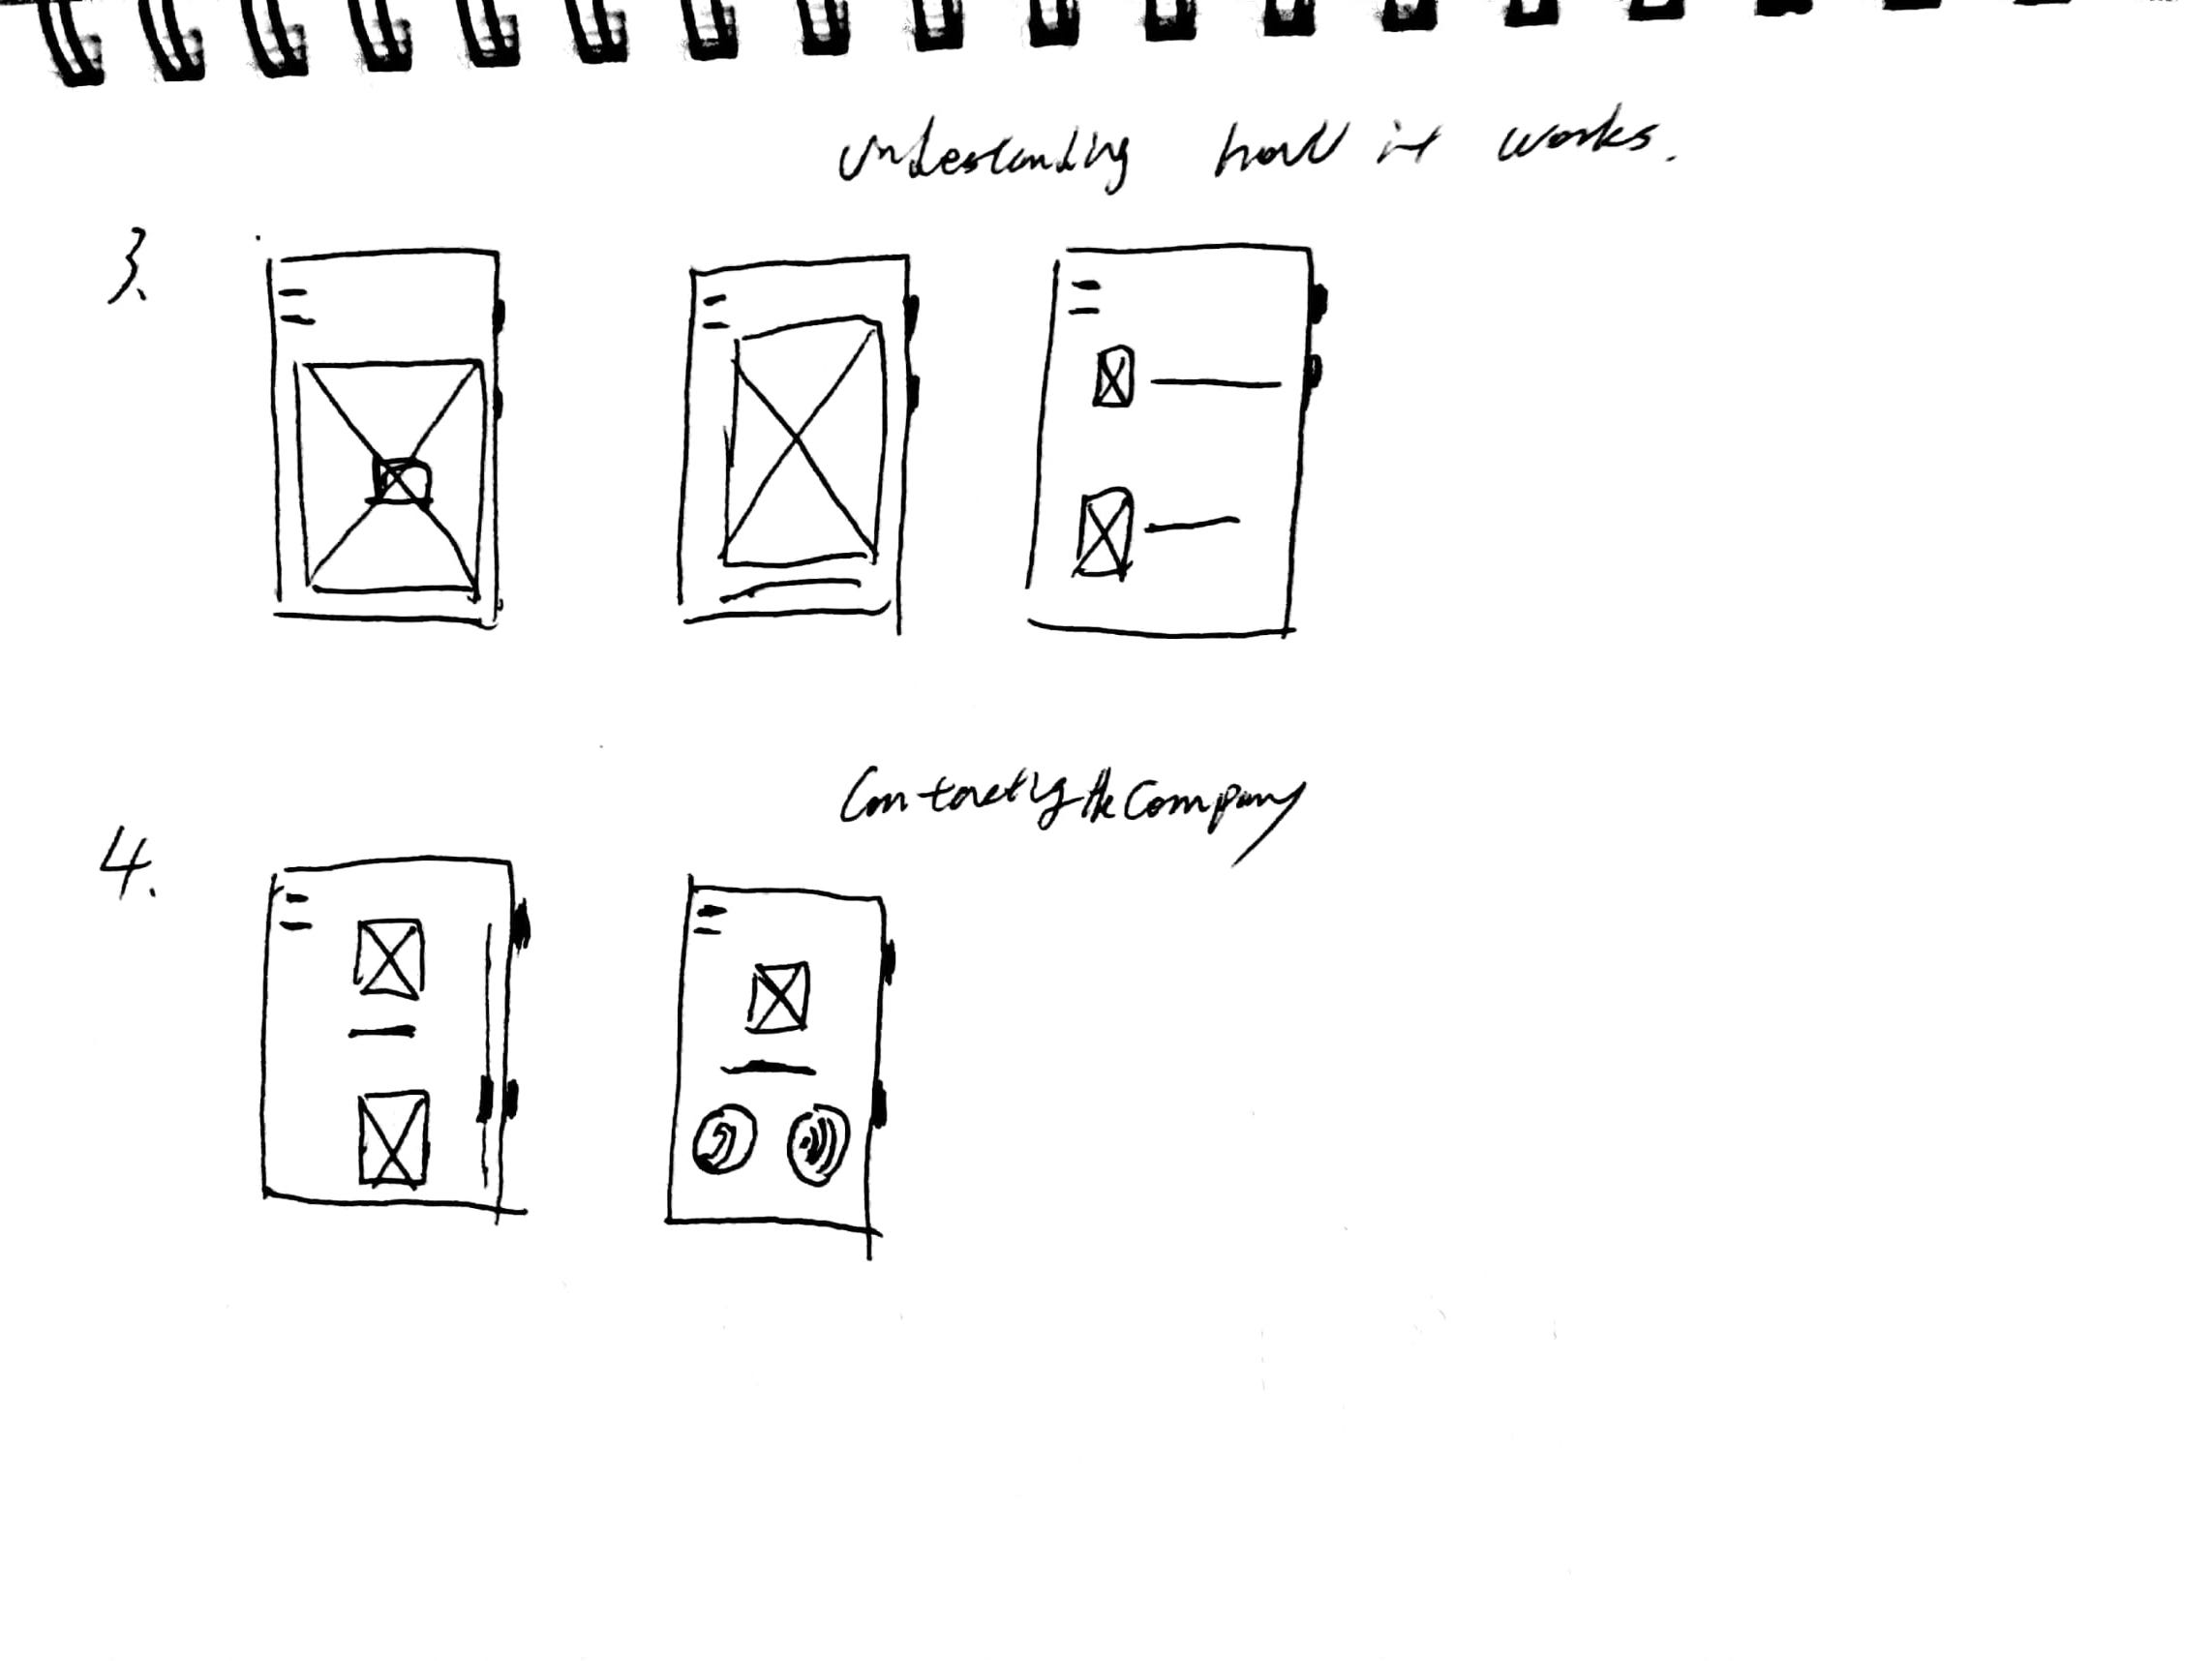 Understanding how it works.
3.
Contacting the Company
4.